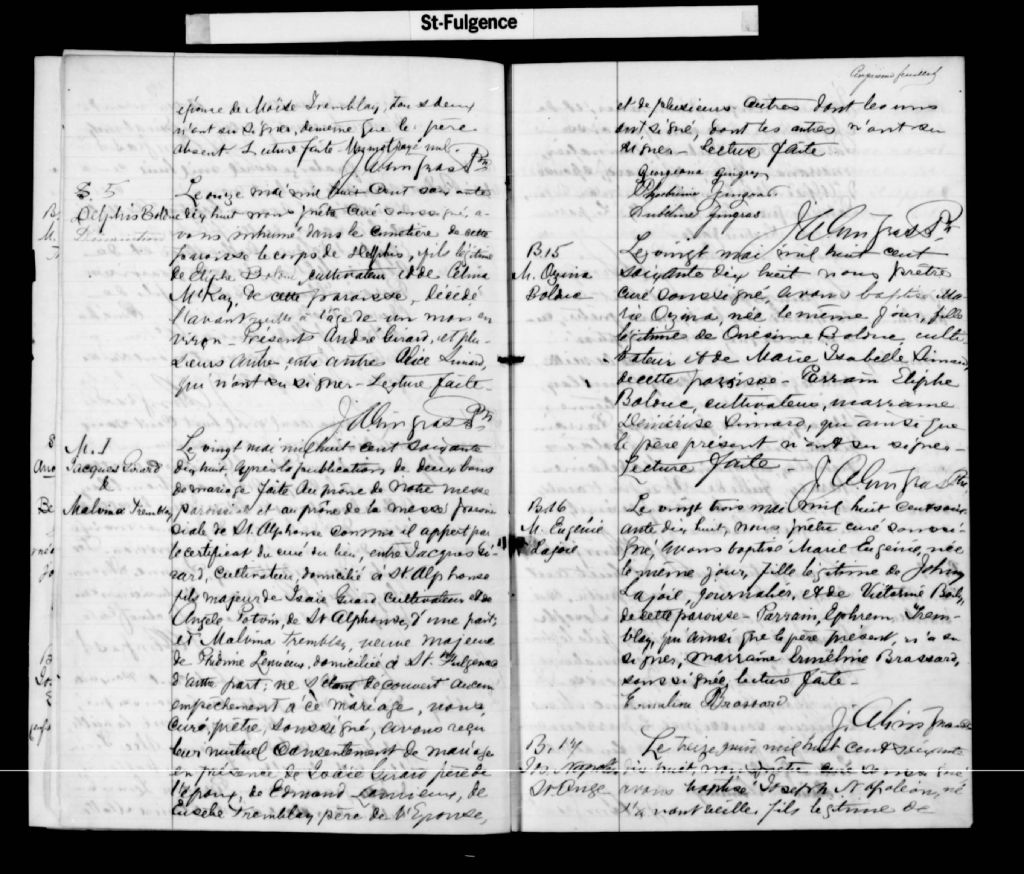 St-Fulgence
épouse de Moïse Tremblay, tous deux
n'ont su signer, de même que le père
absent Lecture faite
J A Gingras Ptre
S. 5
Delphis Bolduc
Le onze mai mil huit cent soixante
dix huit nous prêtre curé soussigné, a-
vons inhumé dans le cimetière de cette
paroisse le corps de Delphis, fils légitime
de Eliphe Bolduc, cultivateur et de Célina
McKay, de cette paroisse, décédé
l'avant veille à l'âge de un mois en
viron - Présents André Girard, et plu-
sieurs autres, entre autre Alice Simard,
qui n'ont su signer - Lecture faite
J A Gingras Ptr
M. 1
Jacques Girard
&
Malvina Tremblay
Le vingt mai mil huit cent soixante
dix huit, après la publication de deux bans
de mariage faite au prône de notre messe
paroissiale et au prône de la messe parois
siale de St. Alphonse comme il appert par
le certificat du curé du lieu, entre Jacques Gi-
rard, cultivateur, domicilié à St Alphonse
fils majeur de Isaïe Girard cultivateur et de
Angèle Potvin, de St Alphonse, d'une part;
et Malvina Tremblay, veuve majeure
de Lemieux, domiciliée à St. Fulgence
d'autre part; ne s'étant découvert aucun
empêchement à ce mariage, nous,
curé, prêtre, soussigné, avons reçu
leur mutuel consentement de mariage
en présence de Isaïe Girard père de
l'époux, de Edmond Lemieux, de
Eusèbe Tremblay père de l'épouse,
feuillet
et de plusieurs autres dont les uns
ont signé, dont les autres n'ont su
signer - Lecture faite
Georgiana Gingras
Gingras
Gingras
J A Gingras Ptr
B. 15
M. Ozina
Bolduc
Le vingt mai mil huit cent
soixante dix huit nous prêtre
curé soussigné, avons baptisé Ma-
rie Ozina, née le même jour, fille
légitime de Onésime Bolduc, culti-
vateur et de Marie Isabelle Simard
de cette paroisse - Parrain Eliphe
Bolduc, cultivateur, marraine
Simard, qui ainsi que
le père présent n'ont su signer
Lecture faite -
J. A Gingras Ptre
B. 16
M. Eugénie
Lajoie
Le vingt trois mai mil huit cent soix-
ante dix huit, nous prêtre curé soussi-
gné, avons baptisé Marie Eugénie, née
le même jour, fille légitime de Johny
Lajoie, journalier, et de Victorine
de cette paroisse - Parrain, Ephrem Trem-
blay, qui ainsi que le père présent, n'a su
signer, marraine Erméline Brassard,
soussignée, lecture faite -
Ermeline Brassard
J. A Gingras
B. 17
Jos. Napoléon
St Onge
Le treize juin mil huit cent soixante
dix huit, nous prêtre curé soussigné
avons baptisé Joseph Napoléon, né
l'avant veille, fils légitime de